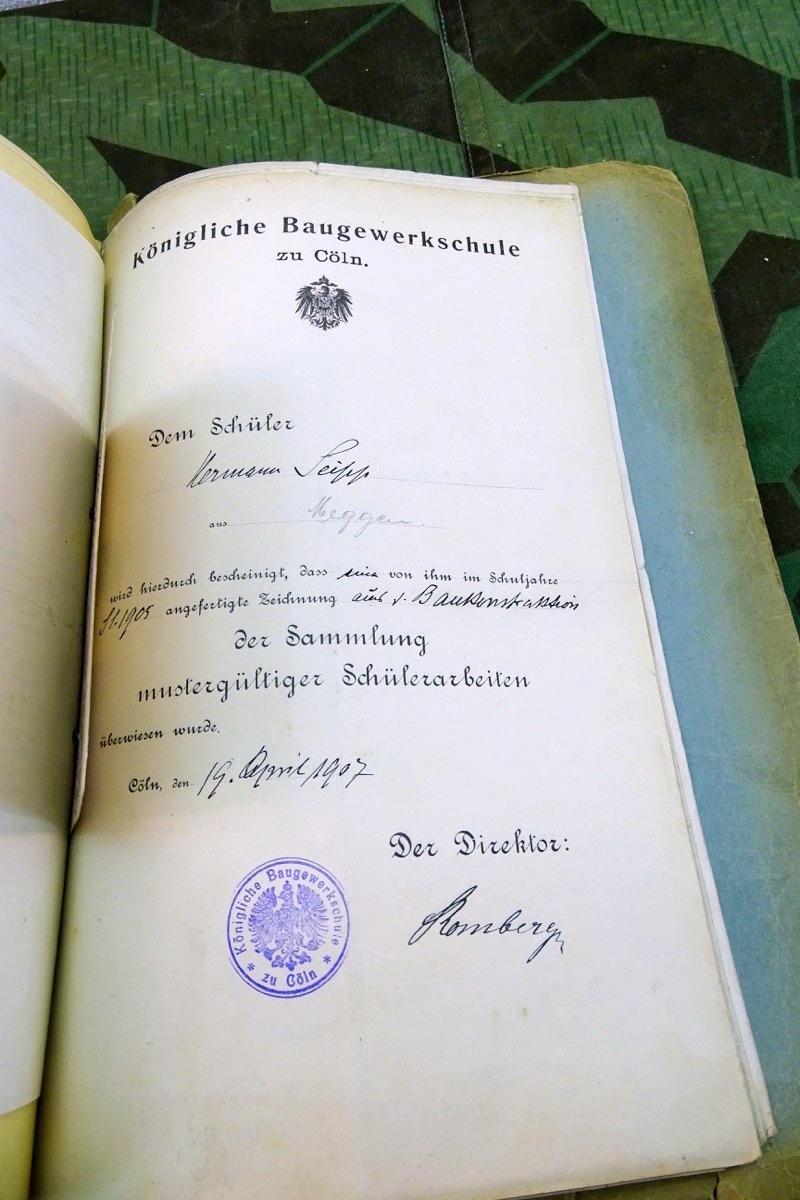 Königliche Baugewerkschule
zu Cöln.
Dem Schüler
Hermann Seipp
aus Meggen.
wird hierdurch bescheinigt, dass eine von ihm im Schuljahre
1905 angefertigte Zeichnung aus d. Baukonstruktion
der Sammlung
mustergültiger Schülerarbeiten
überwiesen wurde.
Cöln, den 19. April 1907
Der Direktor:
Romberg
Königliche Baugewerkschule
* zu Cöln *